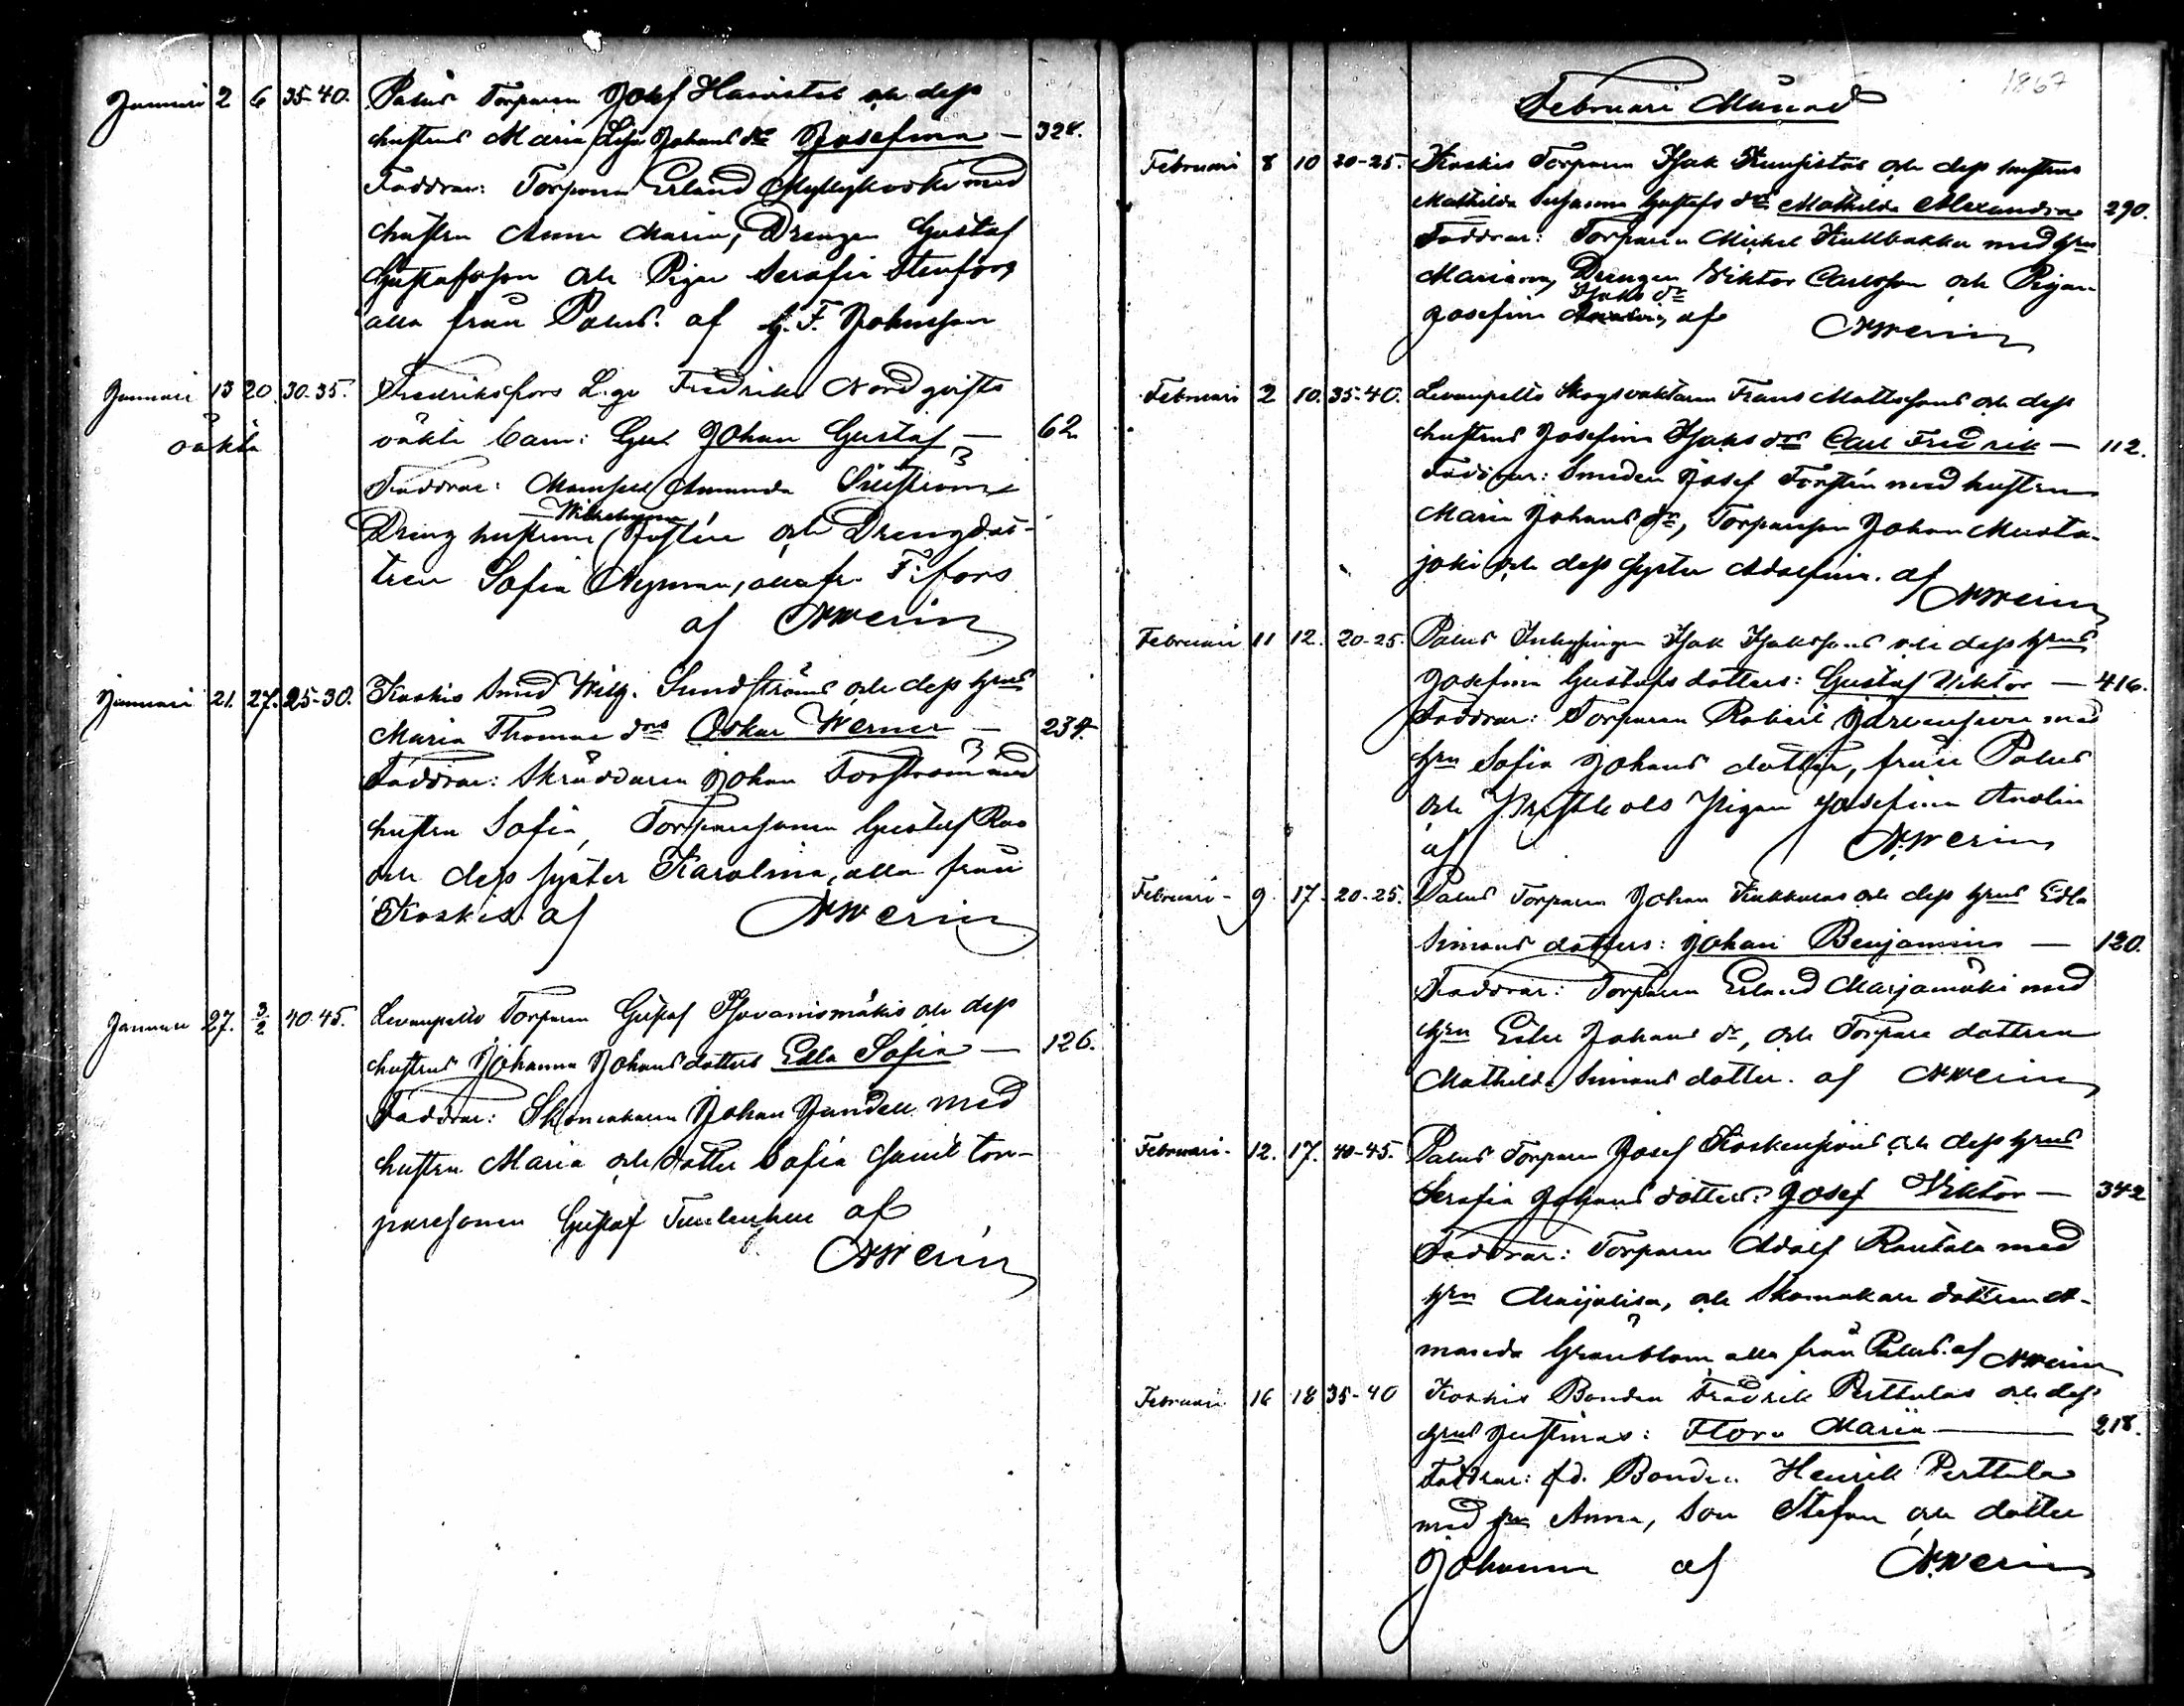 Januari 2 6 35-40. Palus Torparen Josef Havistos och dess
hustrus Maria Lisa Johans drs Josefina — 328.
Faddrar: Torparen Erland Myllykoski med
hustru Anna Maria, Drengen Gustaf
Gustafsson och Pigan Serafia Stenfors
alla från Palus. af G. F. Johnsson
Januari 13 20 30-35. Fredriksfors L.ge Fredrika Nord gvists
oäkta oäkta barn: Gos. Johan Gustaf — 62
Faddrar: Mamsell Amanda
Wilhelmina
Dreng hustrun och Drengdot-
tren Sofia Nyman, alla fr. F:fors
af N Werin
Januari 21. 27. 25-30. Koskis Smed Wilh. Sundströms och dess hrus
Maria Thomae drs Oskar Werner — 234.
Faddrar: Skräddaren Johan Forsström med
hustru Sofia, Torparesonen Gustaf Roo
och dess syster Karolina, alla från
Koskis af N Werin
Januari 27. 3/2 40-45. Levanpelto Torparen Gustaf och dess
hustrus Johanna Johansdotters Edla Sofia — 126.
Faddrar: Skomakaren Johan Jandell med
hustru Maria och dotter Sofia samt tor-
paresonen Gustaf af
N Werin
1867
Februari Månad
Februari 8 10 20-25. Koskis Torparen Isak Kuusistos och dess hustrus
Mathilda Susanna Gustafs drs Mathilda Alexandra 290.
Faddrar: Torparen Michel Kallbakka med hrn
Mariana, Drengen Wiktor Carlsson och Pigan
Isaks dr
Josefina af N Werin
Februari 2 10. 35-40. Levanpelto Skogsvaktaren Frans Mattssons och dess
hustrus Josefina Isaks drs Carl Fredrik — 112.
Faddrar: Smeden Josef Forstén med hustru
Maria Johans dr, Torparson Johan Musta-
joki och dess syster Adolfina. af
N Werin
Februari 11 12. 20-25. Palus Inhysingen Isak Isakssons och dess hrus
Josefina Gustafs dotters: Gustaf Viktor — 416.
Faddrar: Torparen Robert Järvensivu med
hrn Sofia Johans dotter, från Palus
och Pigan Josefina Andlin
af N. Werin
Februari - 9. 17. 20-25. Palus Torparen Johan Kukkulas och dess hrus Edla
Simons dotters: Johan Benjamin — 120.
Faddrar: Torparen Erland Marjamäki med
hrn Johans dr, och Torpare dottren
Mathilda Simons dotter. af N Werin
Februari - 12. 17. 40-45. Palus Torparen Josef och dess hrus
Serafia Johans dotters: Josef Viktor — 342
Faddrar: Torparen Adolf Rautala med
hrn Maijalisa, och Skomakare dottren A-
manda Granblom alla från Palus. af N Werin
Februari 16 18 35-40 Koskis Bonden Fredrik Perttulas och dess
hrus Justinas: Flora Maria — 218.
Faddrar: fd. Bonden Henrik Perttula
med hrn Anna, Son Stefan och dotter
Johanna af N. Werin